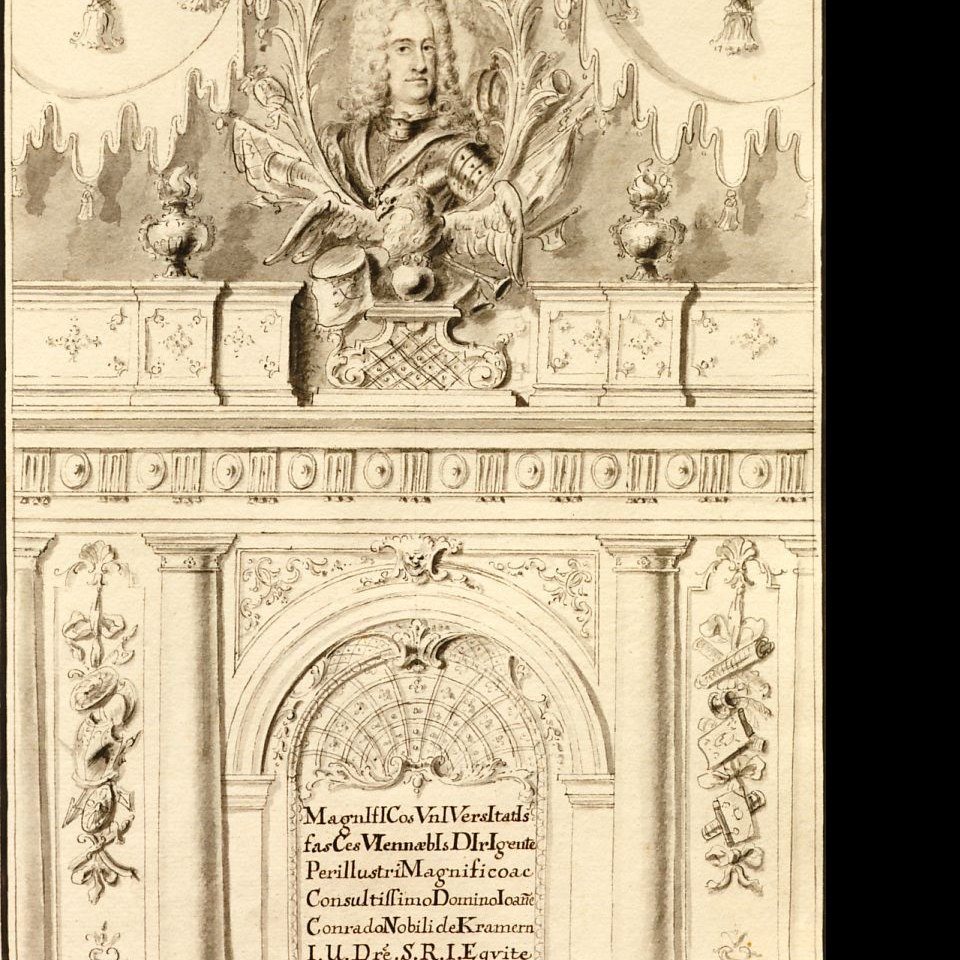 MagnIfICos VnIVersItatIs
fasCes VIennæbIs DIrIgente
Perillustri Magnifico ac
Consultissimo Domino Ioañe
Conrado Nobili de Kramern
I. U. Dre. S. R. I. Equite